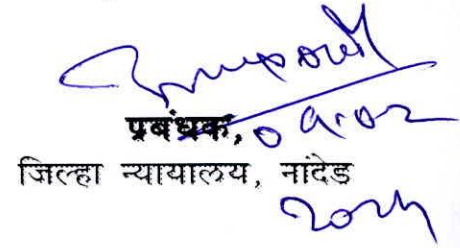 प्रबंधक,
०१.०२
जिल्हा न्यायालय, नांदेड
२०२५